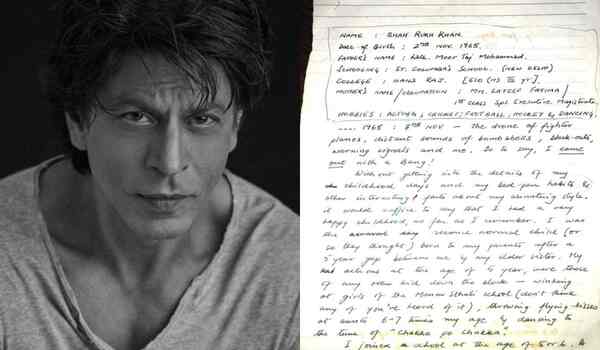 NAME : SHAH RUKH KHAN.
Date of Birth : 2ND NOV 1965.
FATHER'S NAME : Late. Meer Taj Mohammed.
SCHOOLING : ST. COLUMBA'S SCHOOL. (NEW DELHI)
COLLEGE : HANS RAJ.
MOTHER'S NAME/OCCUPATION : MRS. LATEEF FATIMA/
1st CLASS Spl Executive Magistrate
HOBBIES : ACTING, CRICKET, FOOTBALL, HOCKEY & DANCING.
.... 1965 : 2ND NOV - the drone of fighter
planes, distant sounds of bombshells, black-outs,
warning signals and me. So to say, I came
out with a Bang!
Without getting into the details of my
childhood days and my bed-pan habits &
other interesting facts about my urinating style,
it would suffice to say that I had a very
happy childhood, as far as I remember. I was
the second normal child (or
so they thought) born to my parents after a
5 year gap between me & my elder sister. My
actions at the age of year, were those
of any man down the block - winking
at girls of the school (don't think
any of you've heard of it), throwing flying kisses
at aunts 6-7 times my age & dancing to
the tune of "Chakke pe Chakka".
I joined a school at the age of